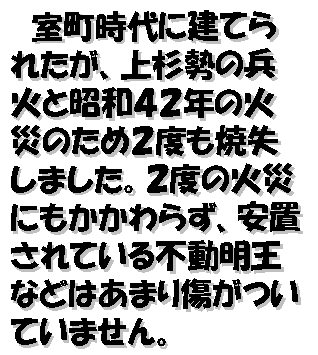 室町時代に建てら
れたが、上杉勢の兵
火と昭和42年の火
災のため2度も焼失
しました。2度の火災
にもかかわらず、安置
されている不動明王
などはあまり傷がつい
ていません。